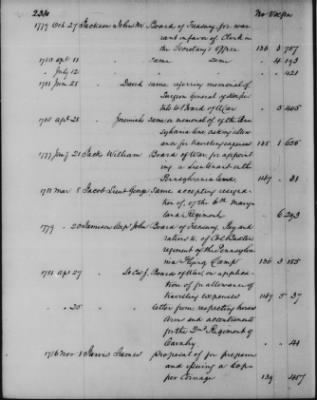 234 No Vol Page
1779 Oct 27 Jackson John Mr Board of Treasury for war
rant in favor of Clerk in
the Secretary's Office 136 3 707
1780 apl 11 " same same " 4 193
" July 12 " " " 421
1781 Jun 21 David same referring memorial of
Surgeon General of Hosp
to Board of War " 5 405
1780 apl 28 Jeremiah same on memorial of of the
sylvania line asking allow
ance for travelling expenses 148 1 605
1777 Jany 21 Jack William Board of War, for appoint
ing a Lieutenant with
Pennsylvania Line 147 " 31
1781 Mar 8 Jacob Lieut George Same accepting resigna
tion of, of the 6th Mary
land Regiment " 6 293
1779 " 20 Jameson John Board of Treasury Pay and
rations to, of Col
regiment of the Pennsylvania
Flying Camp 136 3 155
1781 apl 27 Board of War, on applica
tion of for allowance of
travelling expenses 147 5 37
" 25 letter from respecting horses
Arms and accoutrements
for the 2nd Regiment of
Cavalry " " 41
1776 Nov 8 Jarvis James Proposal of for prepare
and issuing a Cop
per Coinage 139 " 457